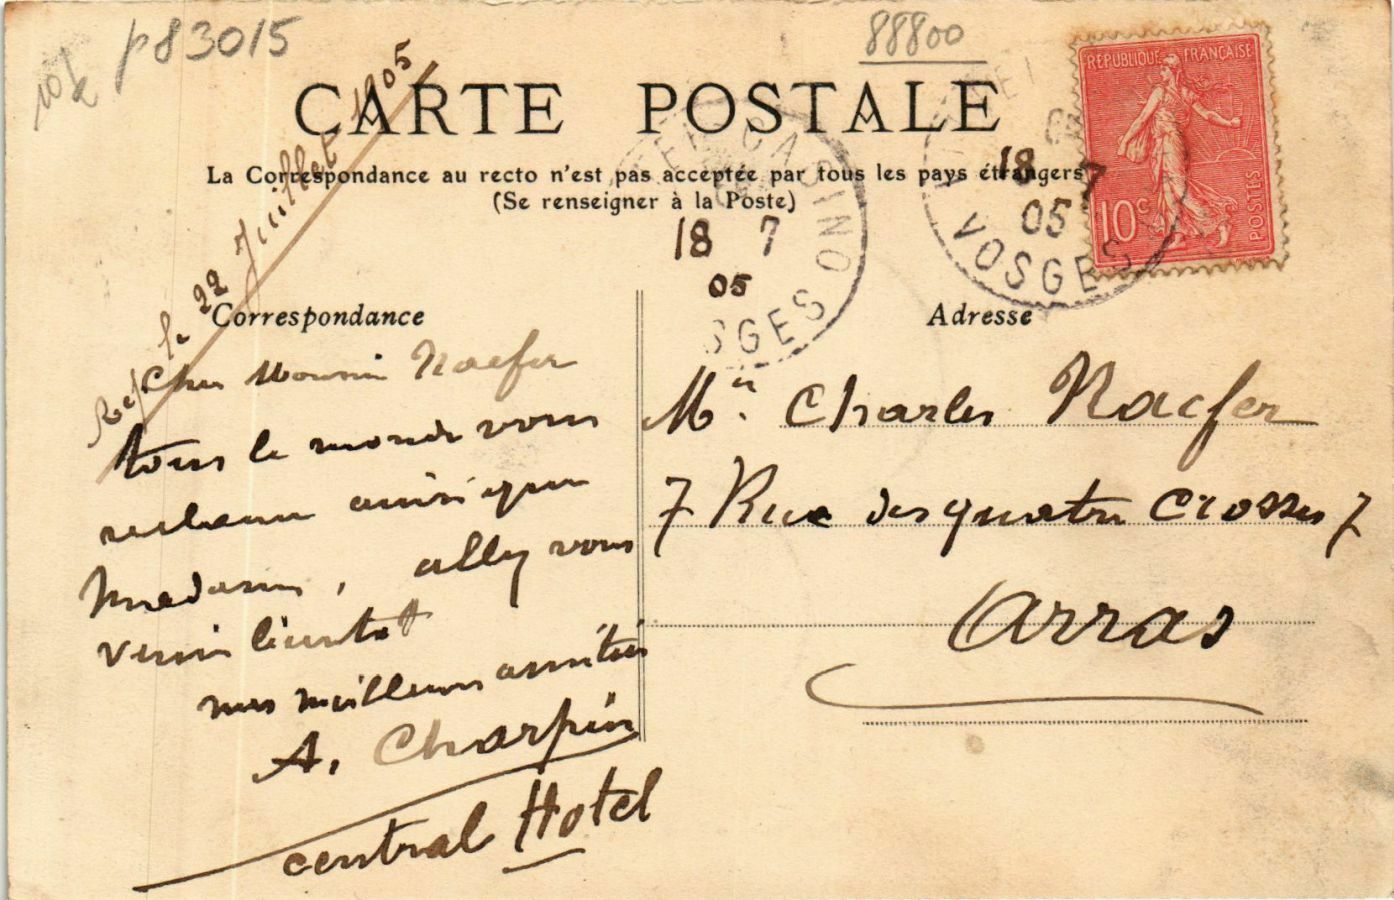 p83015
88800
CARTE POSTALE
La Correspondance au recto n'est pas acceptée par tous les pays étrangers
(Se renseigner à la Poste)
REPUBLIQUE FRANÇAISE
10c
POSTES
CASINO
18 7
05
VOSGES
18 7
05
VOSGES
le 22 Juillet 1905
Correspondance
Cher Monsieur Naefer
tous le monde vous
reclame ainsi que
Madame, allez vous
venir bientot
mes meilleurs amitiés
A. Charpin
Central Hotel
Adresse
Mr. Charles Naefer
7 Rue des quatre Crosses 7
Arras